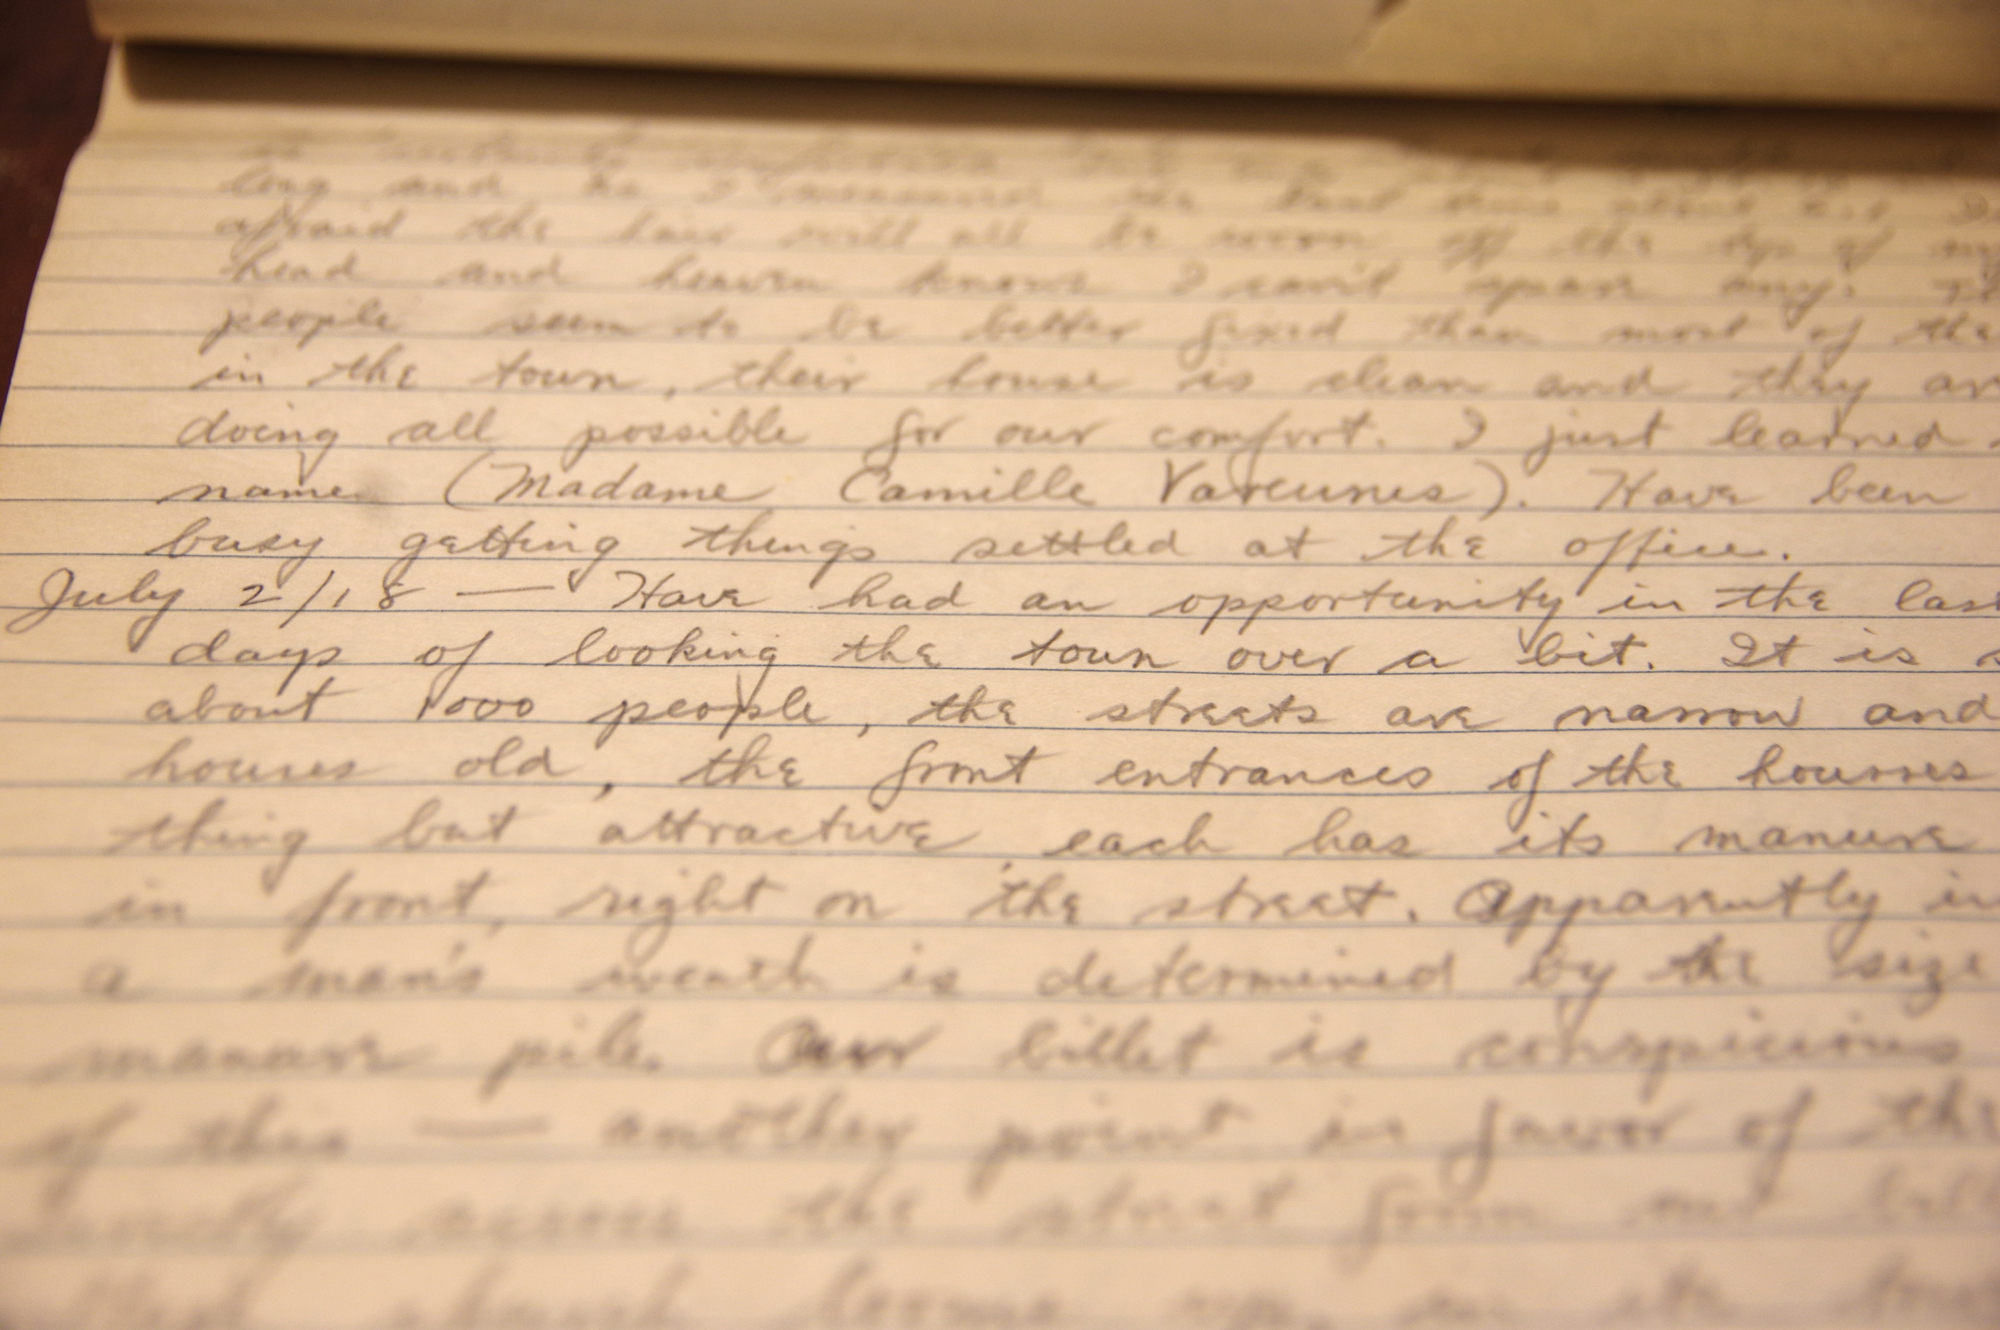 long and as I measured the
afraid the hair will all be worn off the top of my
head and heaven knows I can't spare any.
people seem to be better fixed than most of the
in the town, their house is clean and they ar
doing all possible for our comfort. I just learned
name (Madame Camille Vareunes). Have been
busy getting things settled at the office.
July 2/18 — Have had an opportunity in the last
days of looking the town over a bit. It is
about 1000 people, the streets are narrow and
houses old, the front entrances of the houses
thing but attractive, each has its manure
in front, right on the street. Apparently in
a man's wealth is determined by the size
manure pile. Our billet is conspicious
of this — another point in favor of the
directly across the street from
church looms up in its